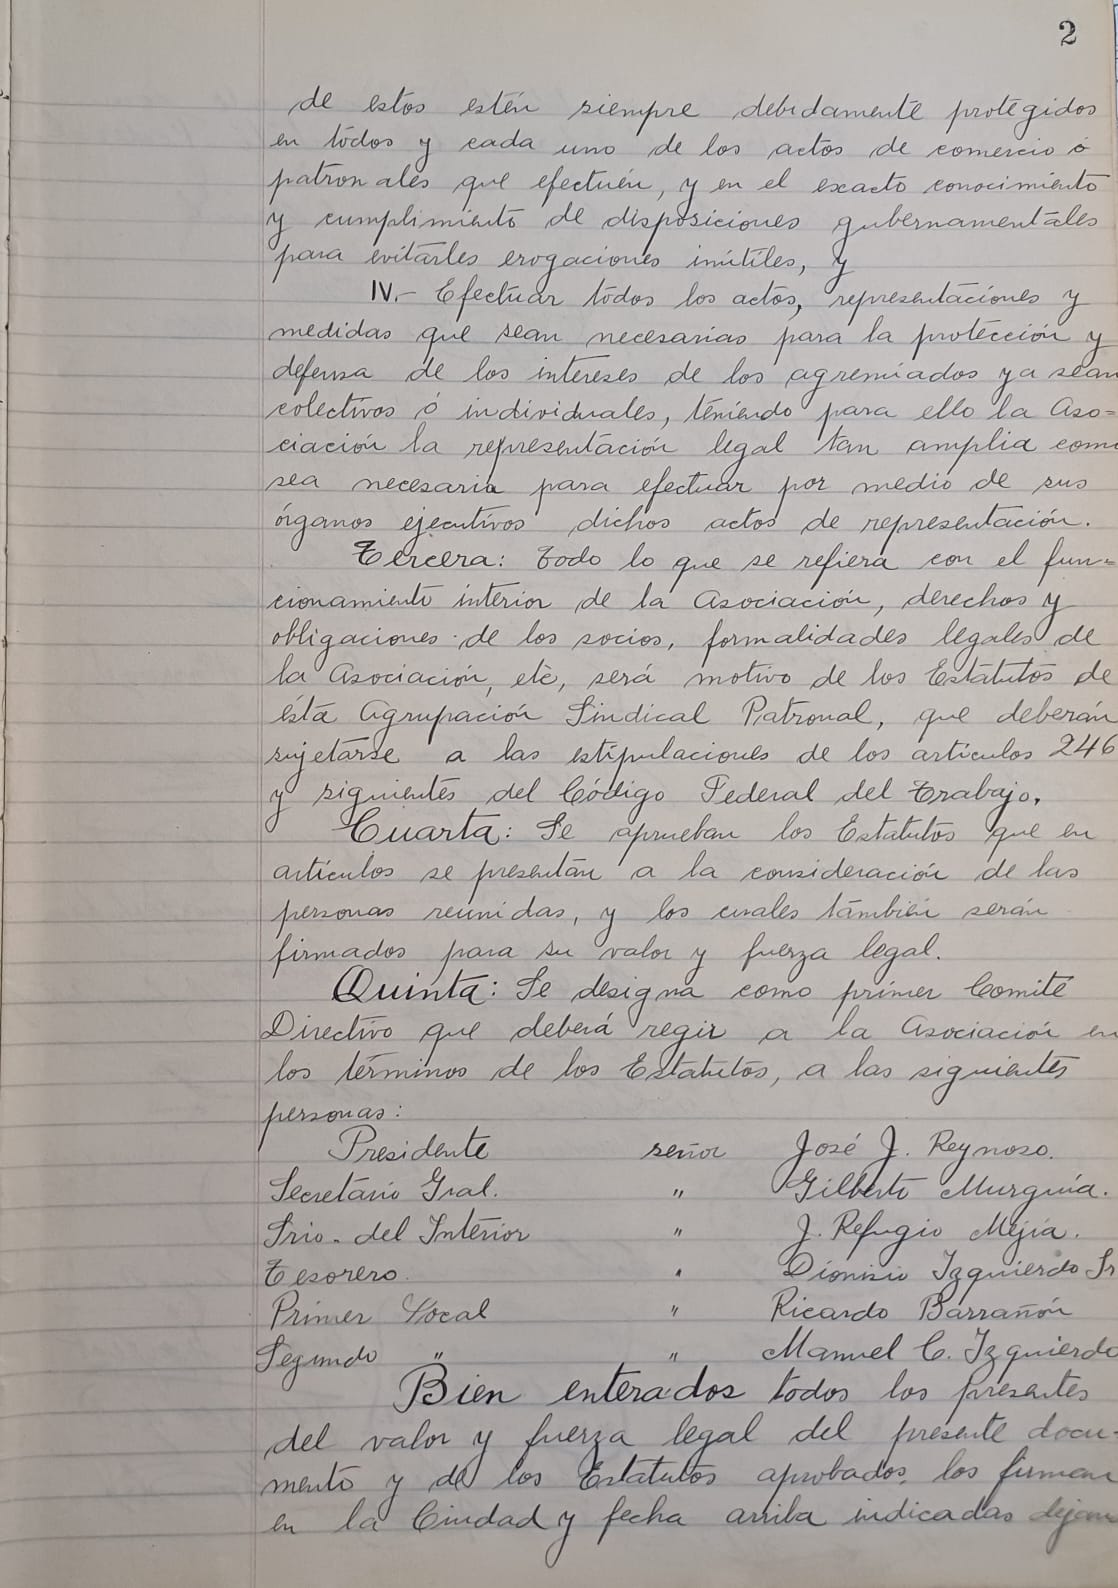 2
de estos estén siempre debidamente protegidos
en todos y cada uno de los actos de comercio ó
patronales que efectuén, y en el exacto conocimiento
y cumplimiento de disposiciones gubernamentales
para evitarles erogaciones inútiles, y
IV.- Efectuar todos los actos, representaciones y
medidas que sean necesarias para la protección y
defensa de los intereses de los agremiados ya sean
colectivos ó individuales, teniendo para ello la Aso=
ciación la representación legal tan amplia como
sea necesaria para efectuar por medio de sus
órganos ejecutivos dichos actos de representación.
Tercera: Todo lo que se refiera con el fun=
cionamiento interior de la Asociación, derechos y
obligaciones de los socios, formalidades legales de
la Asociación, etc, será motivo de los Estatutos de
ésta Agrupación Sindical Patronal, que deberán
sujetarse a las estipulaciones de los artículos 246
y siguientes del Código Federal del Trabajo.
Cuarta: Se aprueban los Estatutos que en
artículos se presentan a la consideración de las
personas reunidas, y los cuales también serán
firmados para su valor y fuerza legal.
Quinta: Se designa como primer Comité
Directivo que deberá regir a la Asociación en
los términos de los Estatutos, a las siguientes
personas:
Presidente señor José J. Reynoso.
Secretario Gral. " Gilberto Murguía.
Srio. del Interior " J. Refugio Mejía.
Tesorero. " Dionisio Izquierdo Sr
Primer Vocal " Ricardo Barrañón
Segundo " " Manuel C. Izquierdo
Bien enterados todos los presentes
del valor y fuerza legal del presente docu-
mento y de los Estatutos aprobados, los firman
en la Ciudad y fecha arriba indicadas dejan